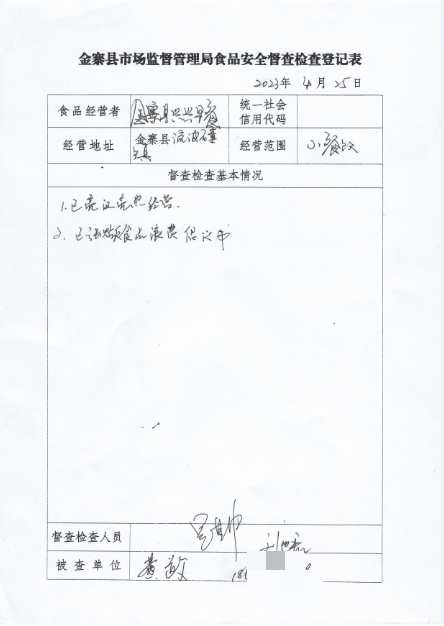 金寨县市场监督管理局食品安全督查检查登记表
2023年 4月 25日
食品经营者 金寨县兴兴早餐 统一社会信用代码
经营地址 金寨县流波䃥镇 经营范围 小餐饮
督查检查基本情况
1.已亮证亮照经营.
2.已张贴食品浪费倡议书
督查检查人员
被查单位 黄